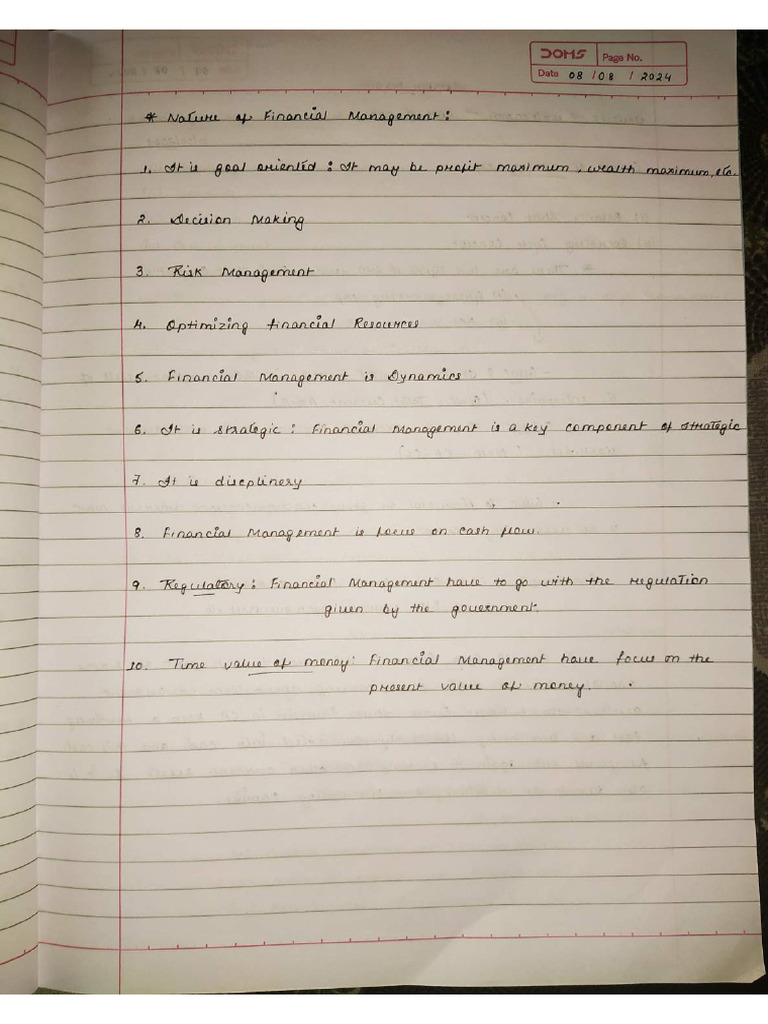 DOMS Page No.
Date 08 / 08 / 2024
* Nature of Financial Management :
1. It is goal oriented : It may be profit maximum, wealth maximum, etc.
2. Decision Making
3. Risk Management
4. Optimizing financial Resources
5. Financial Management is Dynamics
6. It is strategic : Financial Management is a key component of strategic
7. It is discplinery
8. Financial Management is focus on cash flow.
9. Regulatory : Financial Management have to go with the regulation
given by the government.
10. Time value of money : Financial Management have focus on the
present value of money.